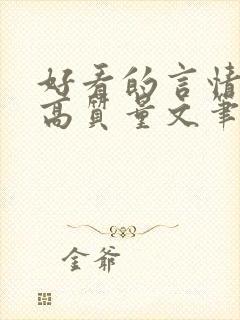 好看的言情
高质量文笔
金爷